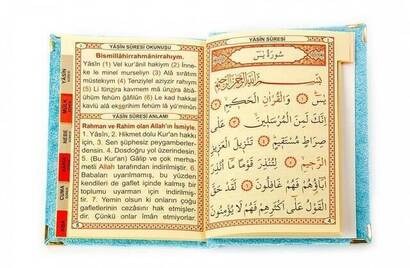 YÂSÎN SÛRESİ OKUNUŞU
Bismillâhirrahmânirrahıym.
Yâsîn (1) Vel kur'ânil hakiym (2) İnne-
ke le minel murseliyn (3) Alâ sırâtım
müstekıym (4) Tenziylel aziyzir rahiym
(5) Li tünzjra kavmem mâ ünzjra âbâ-
ühüm fehüm ğâfilûn (6) Le kad hakkal
kavlü alâ
YÂSÎN SÛRESİ ANLAMI
Rahman ve Rahim olan Allah'ın İsmiyle.
1. Yâsîn, 2. Hikmet dolu Kur'an hakkı
için, 3. Sen şüphesiz peygamberler-
densin. 4. Dosdoğru yol üzerindesin.
5. (Bu Kur'an) Gâlip ve çok merha-
metli Allah tarafından indirilmiştir. 6.
Babaları uyarılmamış, bu yüzden
kendileri de gaflet içinde kalmış bir
toplumu uyarman için indirilmiş-
tir. 7. Yemin olsun ki onların çoğu
gafletlerinin cezasını hak etmişler-
dir. Çünkü onlar îmân etmiyorlar.
YÂSİN
MÜLK
NEBE
CUMA
YÂSÎN SÛRESİ
سُورَةُ يٰسٓ
بِسْمِ اللّٰهِ الرَّحْمٰنِ الرَّحِيمِ
يٰسٓ ﴿١﴾ وَالْقُرْاٰنِ الْحَكِيمِ ﴿٢﴾
اِنَّكَ لَمِنَ الْمُرْسَلِينَ ﴿٣﴾ عَلٰى
صِرَاطٍ مُسْتَقِيمٍ ﴿٤﴾ تَنْزِيلَ الْعَزِيزِ
الرَّحِيمِ ﴿٥﴾ لِتُنْذِرَ قَوْمًا مَٓا اُنْذِرَ
اٰبَٓاؤُهُمْ فَهُمْ غَافِلُونَ ﴿٦﴾ لَقَدْ حَقَّ
الْقَوْلُ عَلٰٓى اَكْثَرِهِمْ فَهُمْ لَا يُؤْمِنُونَ